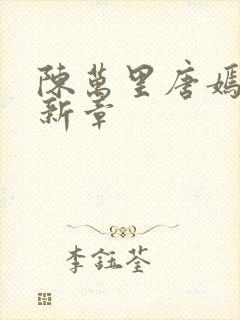 陳萬里唐嫣
新章
李鈺荃